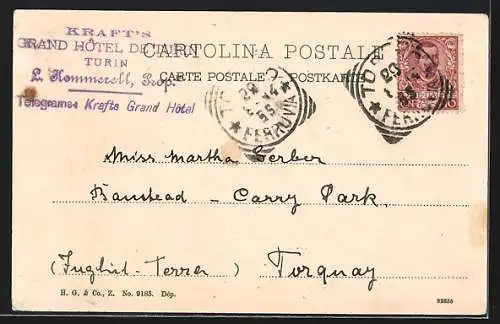 KRAFT'S
GRAND HÔTEL DE TURIN
TURIN
L. Kommerell, Prop.
Telegrams: Krafts Grand Hôtel
CARTOLINA POSTALE
CARTE POSTALE POSTKARTE
TORINO
29
FERROVIA
TORINO
29
FERR
Miss Martha Gerber
Banstead — Carry Park,
(Inghil-Terra) Torquay
H. G. & Co., Z. No. 9185. Dép.